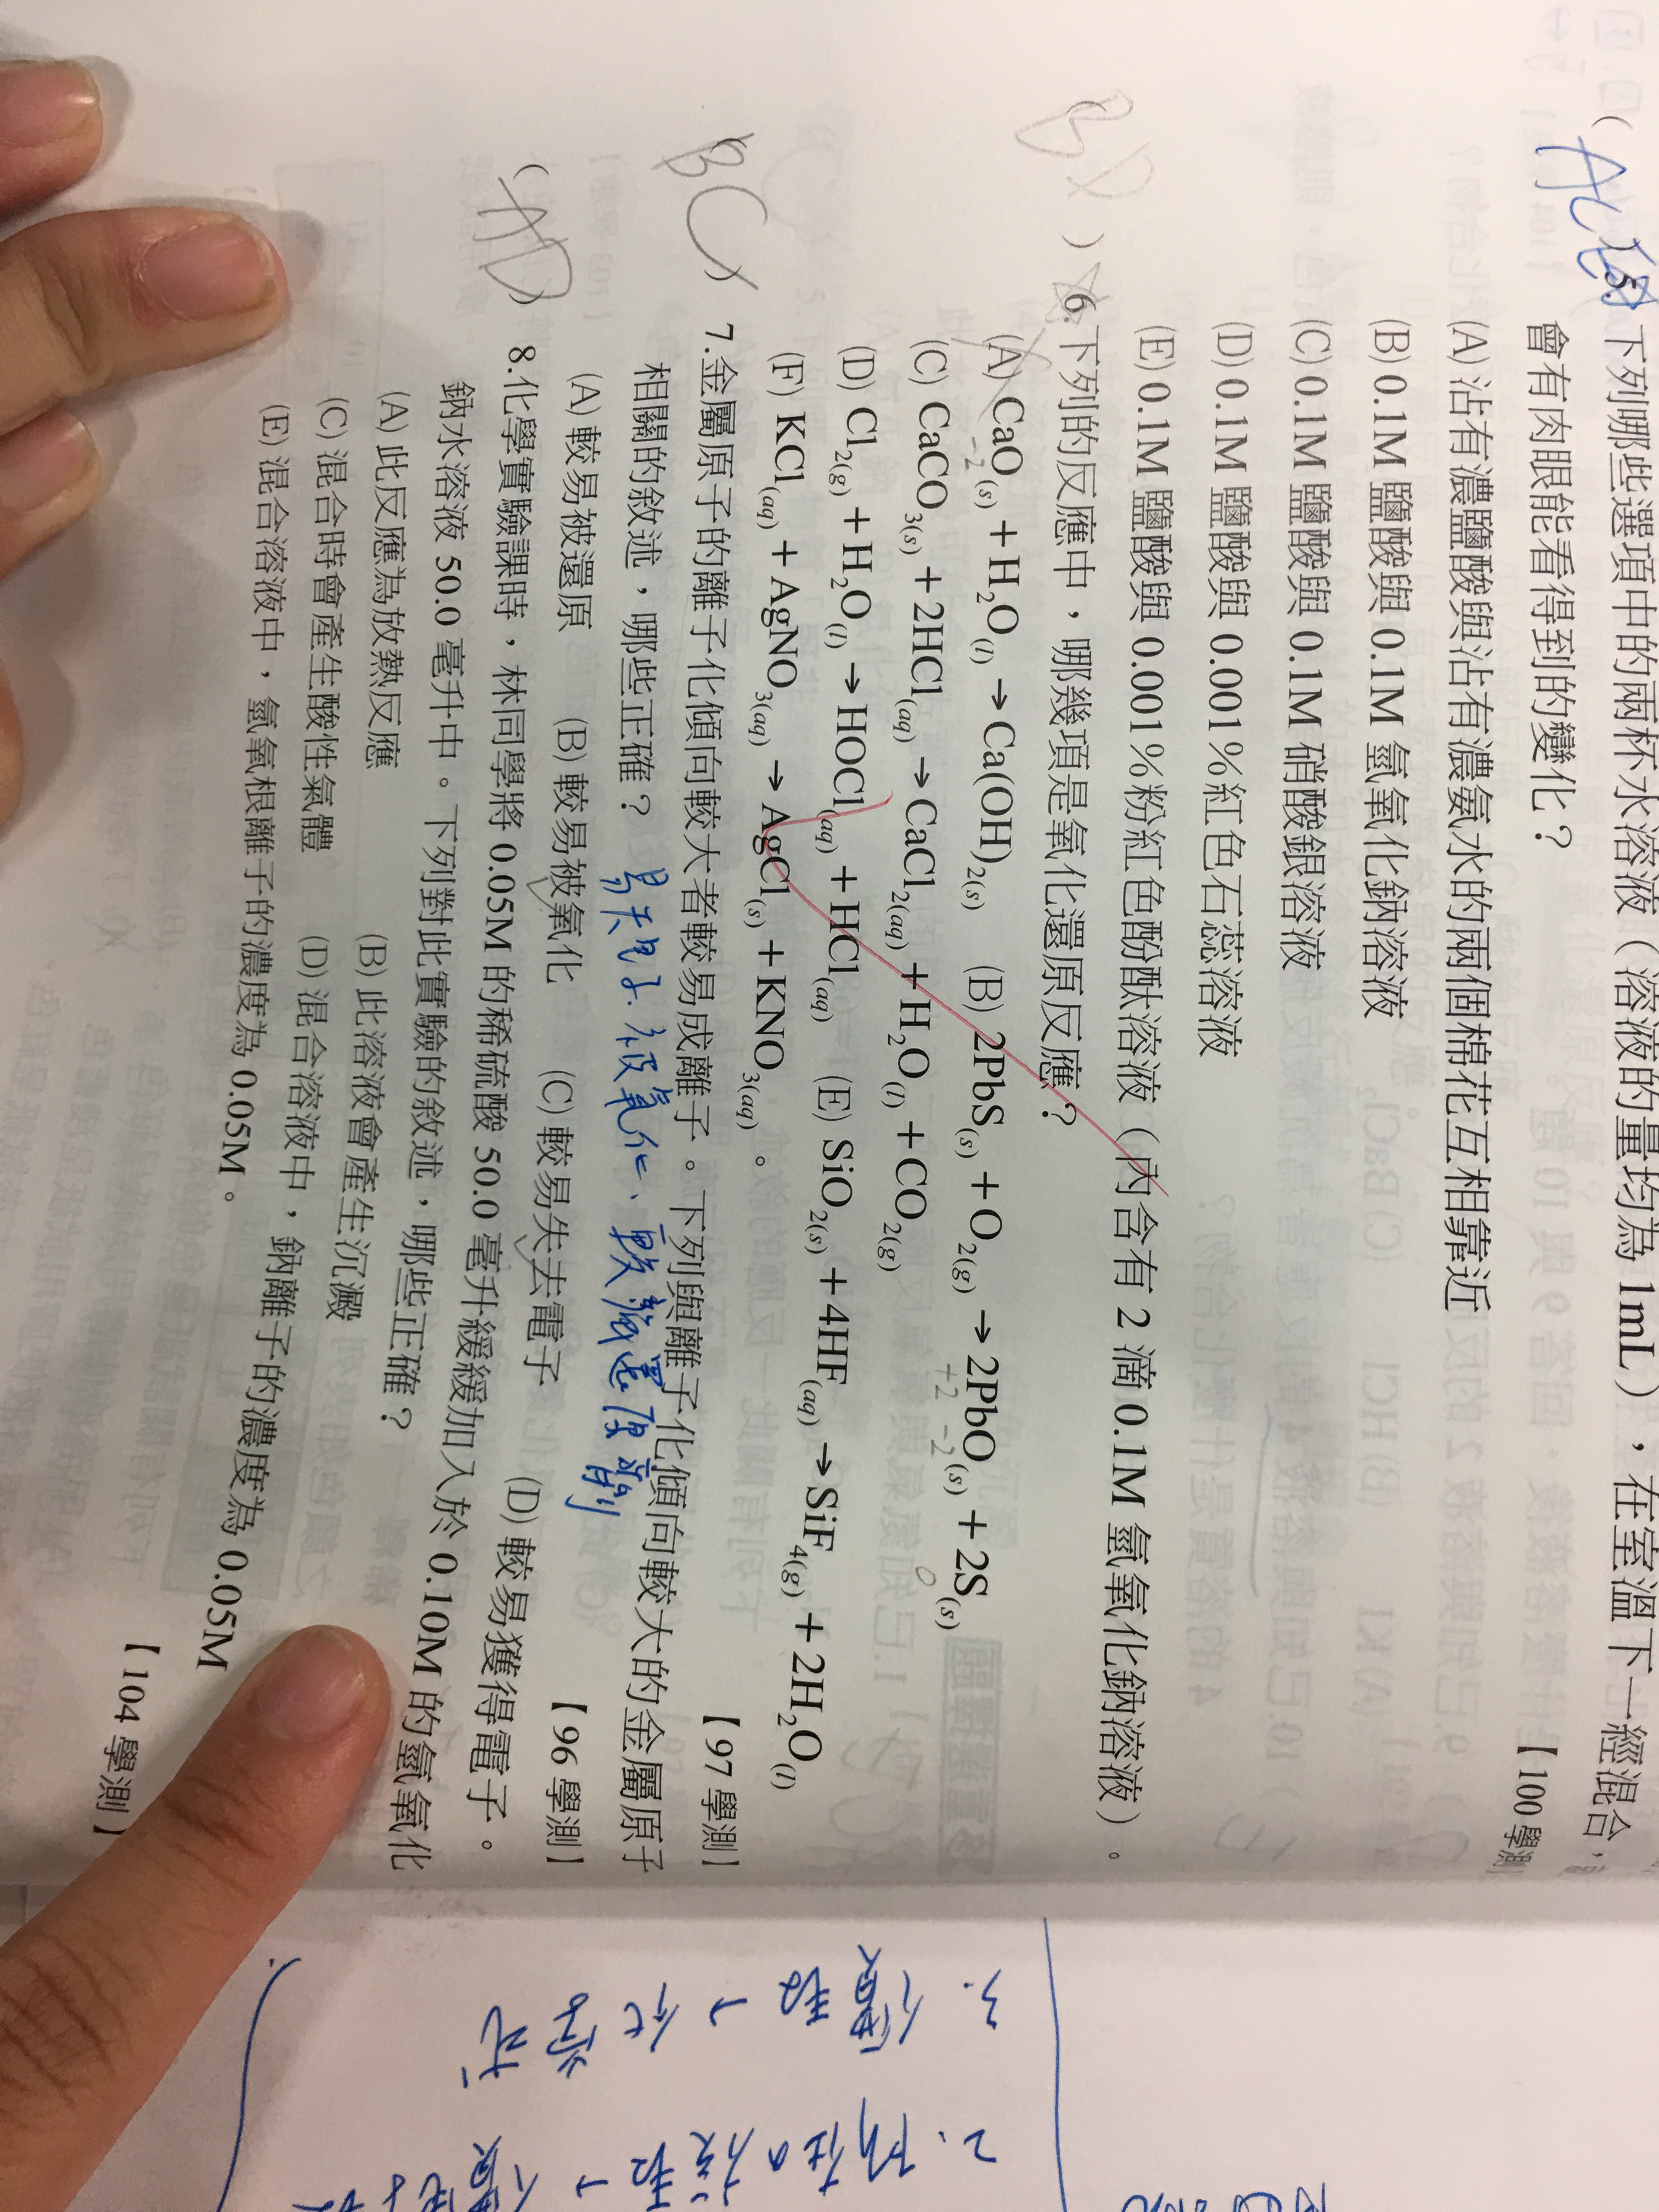 (ACE)5.下列哪些選項中的兩杯水溶液（溶液的量均為 1mL），在室溫下一經混合，
會有肉眼能看得到的變化？ 【100 學測
(A) 沾有濃鹽酸與沾有濃氨水的兩個棉花互相靠近
(B) 0.1M 鹽酸與 0.1M 氫氧化鈉溶液
(C) 0.1M 鹽酸與 0.1M 硝酸銀溶液
(D) 0.1M 鹽酸與 0.001％紅色石蕊溶液
(E) 0.1M 鹽酸與 0.001％粉紅色酚酞溶液（內含有 2 滴 0.1M 氫氧化鈉溶液）。
BD )6.下列的反應中，哪幾項是氧化還原反應？
(A) CaO(s)＋H2O(l)→Ca(OH)2(s) (B) 2PbS(s)＋O2(g)→2PbO(s)＋2S(s)
-2 +2 -2 0
(C) CaCO3(s)＋2HCl(aq)→CaCl2(aq)＋H2O(l)＋CO2(g)
(D) Cl2(g)＋H2O(l)→HOCl(aq)＋HCl(aq) (E) SiO2(s)＋4HF(aq)→SiF4(g)＋2H2O(l)
(F) KCl(aq)＋AgNO3(aq)→AgCl(s)＋KNO3(aq)。 【97 學測】
BC )7.金屬原子的離子化傾向較大者較易成離子。下列與離子化傾向較大的金屬原子
相關的敘述，哪些正確？ 易失電子.被氧化、較強還原劑 【96 學測】
(A) 較易被還原 (B) 較易被氧化 (C) 較易失去電子 (D) 較易獲得電子。
(AD)8.化學實驗課時，林同學將 0.05M 的稀硫酸 50.0 毫升緩緩加入於 0.10M 的氫氧化
鈉水溶液 50.0 毫升中。下列對此實驗的敘述，哪些正確？
(A) 此反應為放熱反應 (B) 此溶液會產生沉澱
(C) 混合時會產生酸性氣體 (D) 混合溶液中，鈉離子的濃度為 0.05M
(E) 混合溶液中，氫氧根離子的濃度為 0.05M。 【104 學測】
3. 價數→化學式
2.